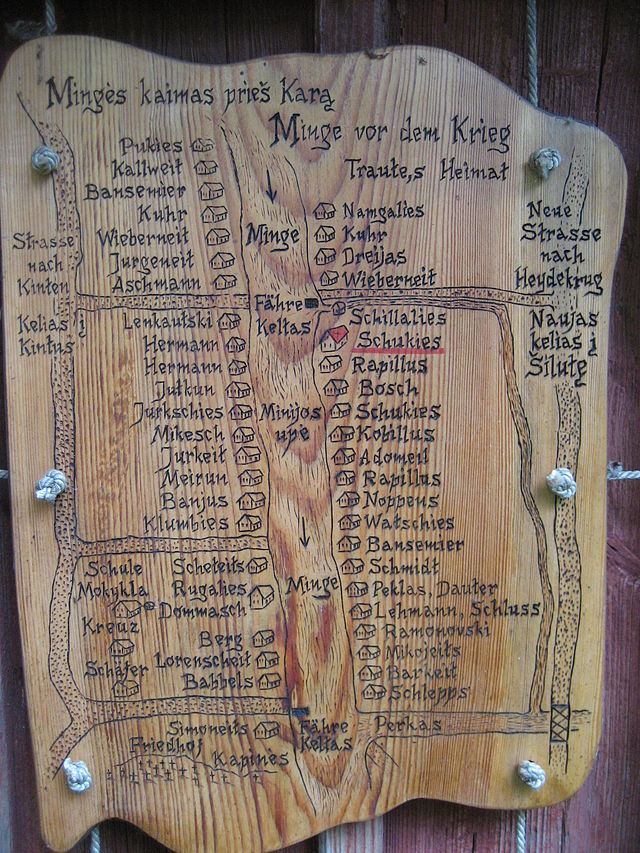 Mingės kaimas prieš Karą
Minge vor dem Krieg
Traute,s Heimat
Pukies
Kallweit
Bansemier
Kuhr
Wieberneit
Jurgeneit
Aschmann
Strasse
nach
Kinten
Kelias į
Kintus
Minge
Namgalies
Kuhr
Dreijas
Wieberneit
Neue
Strasse
nach
Heydekrug
Naujas
kelias į
Šilutę
Fähre
Keltas
Lenkautski
Hermann
Hermann
Jutkun
Jurkschies
Mikesch
Jurkeit
Meirun
Banjus
Klumbies
Minijos
upė
Schillalies
Schukies
Rapillus
Bosch
Schukies
Kobillus
Adomeil
Rapillus
Noppens
Watschies
Bansemier
Schmidt
Peklas, Dauter
Lehmann, Schluss
Ramonovski
Mikojeits
Barkeit
Schlepps
Minge
Schule
Mokykla
Kreuz
Schäfer
Scheteits
Rugalies
Dommasch
Berg
Lorenscheit
Babbels
Simoneits
Friedhof
Kapinės
Fähre
Kelias
Perkas